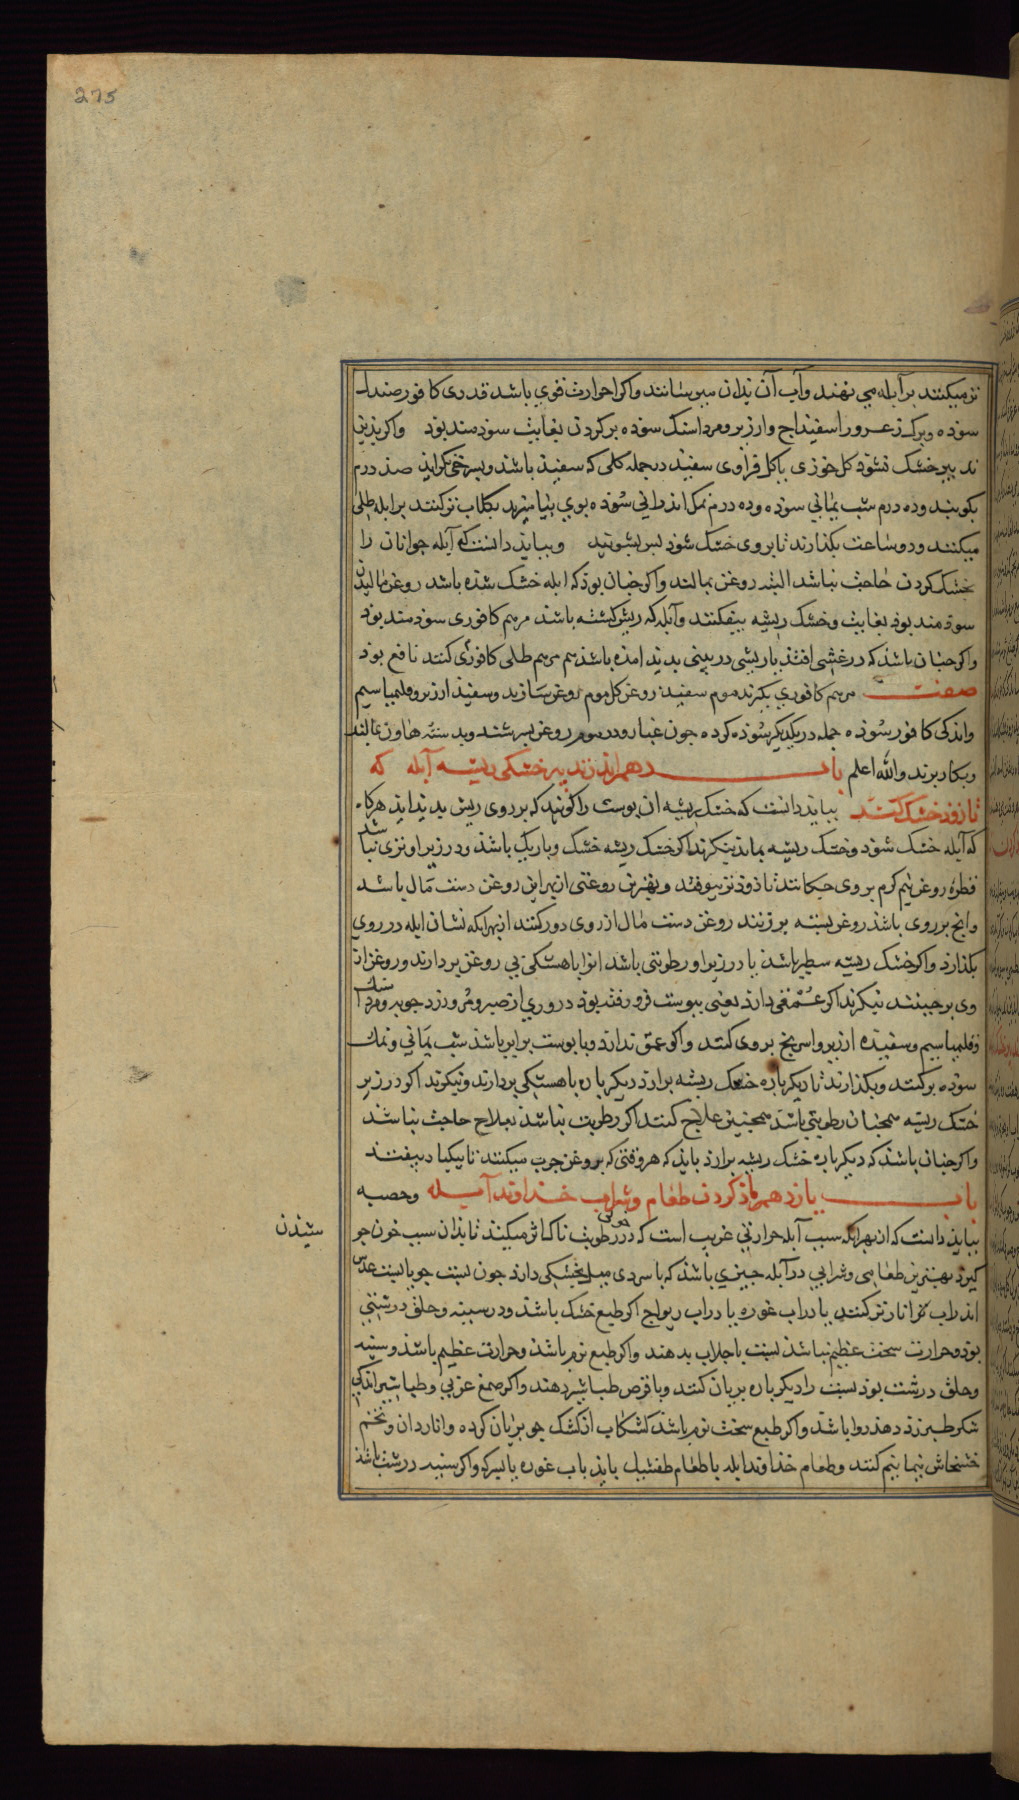 275
تر میکنند بر آبله می نهند وآب آن بدان میرسانند واکر احرارت قوی باشد قدری کافور صندل
سوده وبرک زعرور اسفیداج وارزیز ومرداسنک سوده برکردن بغایت سودمند بود واکر بدین
تدبیر خشک نشود کل خوزی یا کل فراوی سفید درجمله کلی که سفید باشد وبسرخی نکراید صد درم
بکوبند وده درم شب یمانی سوده وده درم نمک اندرانی سوده بوی بیامیزند بکلاب تر کنند بر ابله طلی
میکنند ودو ساعت بکذارند تا بروی خشک شود پس بشویند وبباید دانست که آبله جوانان را
بخشک کردن حاجت نباشد البته روغن نمالند واکر جنان بود که ابله خشک شده باشد روغن مالیدن
سودمند بود بغایت وخشک ریشه بیفکنند وآبله که ریش کشته باشد مرهم کافوری سودمند بود
واکر جنان باشد که در غشی افتد یا ریشی در بینی بدید امده باشد هم مرهم طلی کافوری کنند نافع بود
صفت مرهم کافوری بکیرند موم سفید روغن کل موم روغن سازند وسفید ارزیز وقلمیا سیم
واندکی کافور سوده جمله در یکدیکر سوده کرده جون غبار ودر موم روغن بسرشند وبدسته هاون بمالند
وبکار برند والله اعلم باب دهم اندر تدبیر خشکی ریشه آبله که
تا زود خشک کنند بباید دانست که خشک ریشه ان پوست را کویند که بر روی ریش بدید اید هرکاه
که آبله خشک شود وخشک ریشه بماند بنکرند اکر خشک ریشه خشک وباریک باشد ودر زیر او تری نباشد
قطره روغن نیم کرم بروی جکانند تا زود تر بیوفتد وبهترین روغنی از بهر این روغن دست مال باشد
وانج بر روی باشد روغن بسته بر زنند روغن دست مال از روی دور کنند از بهر انکه نشان ابله در روی
بکذارد واکر خشک ریشه سطبر باشد یا در زیر او رطوبتی باشد انرا باهستکی بی روغن بردارند وروغن از
وی برجینند بنکرند اکر عمقی دارد یعنی ببوست فرو رفته بود دروری از صبر ومر وزرد جوبه ومرداسنک
وقلمیا سیم وسفیده ارزیز واسرنج بروی کنند واکر عمق ندارد وبا بوست برابر باشد شب یمانی ونمک
سوده برکنند وبکذارند تا دیکر باره خشک ریشه برارد دیکر باره باهستکی بردارند وبنکرند اکر در زیر
خشک ریشه همجنان رطوبتی باشد همجنین علاج کنند اکر رطوبت نباشد بعلاج حاجت نباشد
واکر جنان باشد که دیکر باره خشک ریشه برارد باید که هر وقتی که بروغن جرب میکنند تا بیکبار بیفتد
باب یازدهم یاذ کردن طعام وشراب خداوند آبله وحصبه
بباید دانست که از بهر انکه سبب آبله حرارتی غریب است که در رطوبت خون اثر میکند تا بدان سبب خون جو
شیذن
کیرد بهترین طعامی وشرابی در آبله جیزی باشد که با سردی میل بخشکی دارد جون بست جو یا بست عدس
اندر اب انار ترش کنند یا در اب غوره یا در اب ریواج اکر طبع خشک باشد ودر سینه وحلق درشتی
بود وحرارت سخت عظیم نباشد بست با جلاب بدهند واکر طبع نرم باشد وحرارت عظیم باشد وسینه
وحلق درشت بود بست را دیکر باره بریان کنند وبا قرص طباشیر دهند واکر صمغ عربی وطباشیر اندکی
شکر طبرزد دهند روا باشد واکر طبع سخت نرم باشد کشکاب از کشک جو بریان کرده وناردان وتخم
خشخاش بنما بنم کنند وطعام خداوند ابله با طعام طفشیل باید باب غوره یا بسرکه واکر سینه درشت باشد